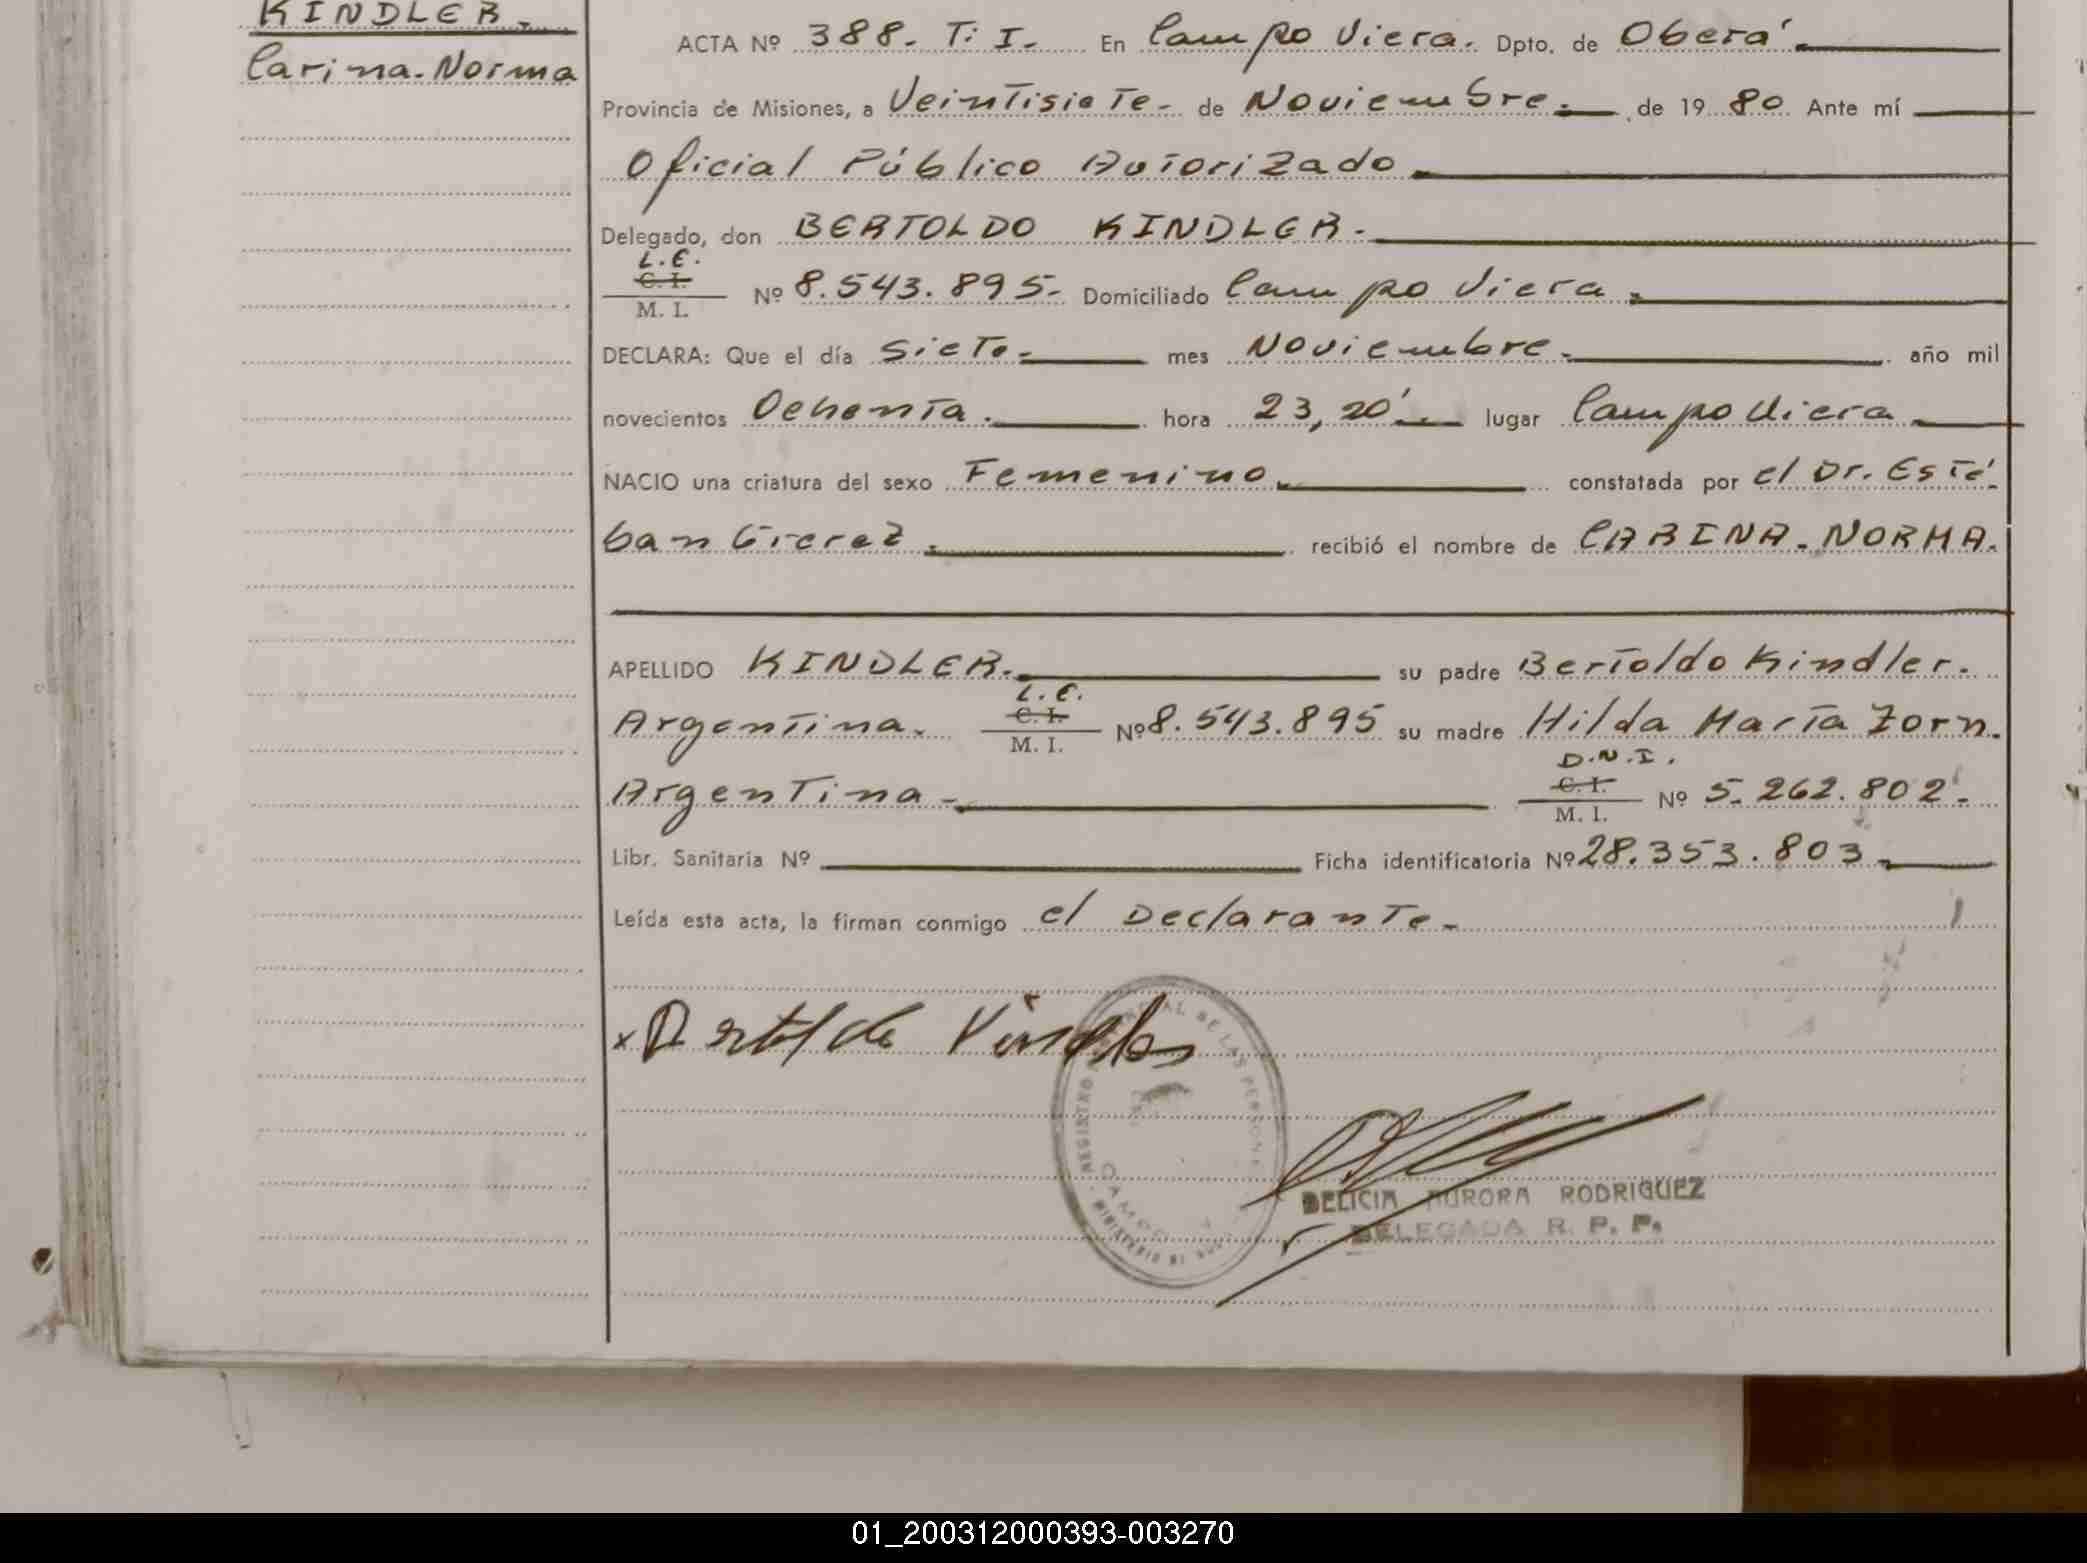 KINDLER.
Carina.Norma
ACTA Nº 388. T: I. En Campo Viera. Dpto. de Oberá.
Provincia de Misiones, a Veintisiete. de Noviembre. de 1980 Ante mí
Oficial Público Autorizado.
Delegado, don BERTOLDO KINDLER.
L.E.
C. I.
M. I. Nº 8.543.895. Domiciliado Campo Viera.
DECLARA: Que el día Siete. mes Noviembre. año mil
novecientos Ochenta. hora 23,20'. lugar Campo Viera
NACIO una criatura del sexo Femenino. constatada por el Dr. Esté-
ban recibió el nombre de CARINA.NORMA.
APELLIDO KINDLER. su padre Bertoldo Kindler.
L.E.
Argentina. C. I. M. I. Nº 8.543.895 su madre Hilda María Zorn.
D.N.I.
Argentina. C. I. M. I. Nº 5.262.802.
Libr. Sanitaria Nº Ficha identificatoria Nº 28.353.803.
Leída esta acta, la firman conmigo el Declarante.
REGISTRO DE LAS PERSONAS
DELICIA AURORA RODRIGUEZ
DELEGADA R. P. P.
01_200312000393-003270